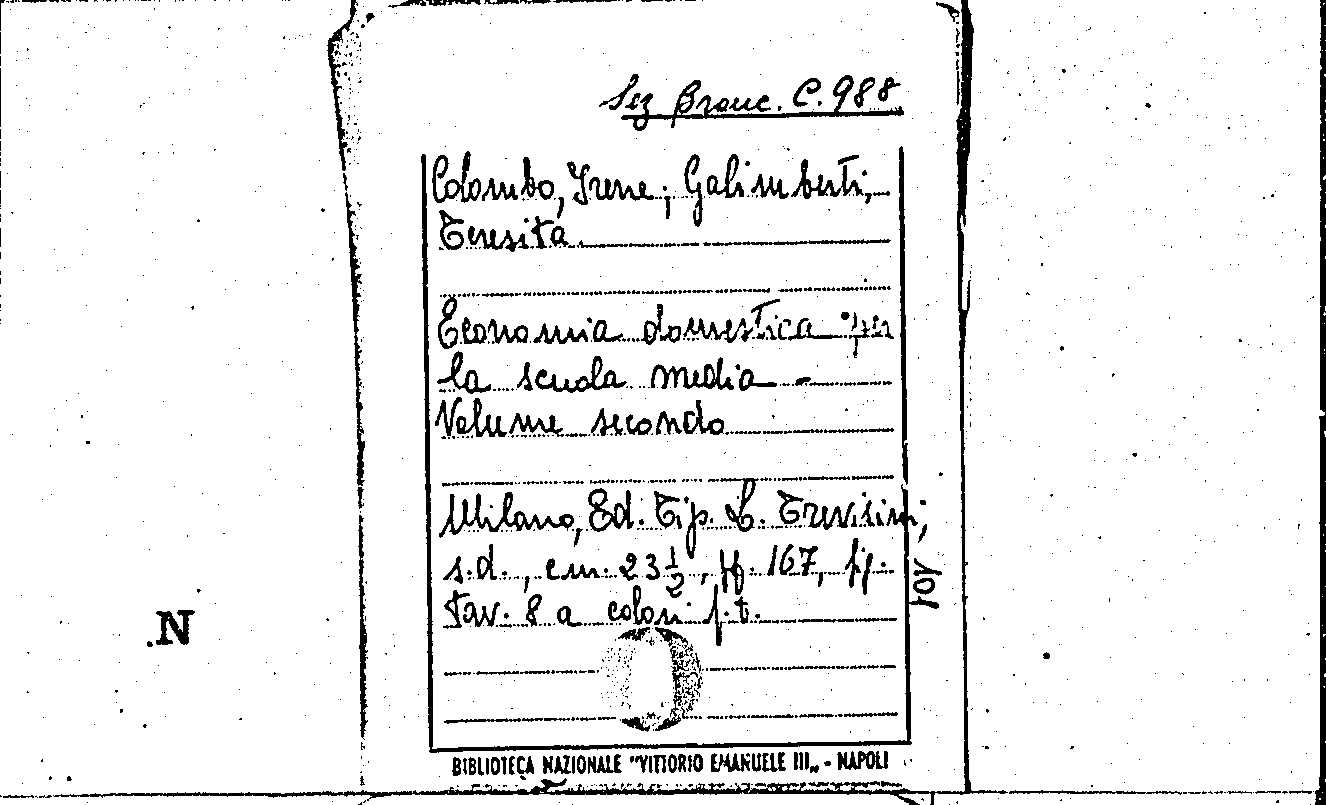 Sez Branc. C. 988
Colombo, Irene; Galimberti,
Teresita.
Economia domestica per
la scuola media -
Volume secondo
Milano, Ed. Tip. L. Trevisini,
s.d., cm. 23 1/2, pp. 167, fig.
tav. 8 a colori f.t.
.N
BIBLIOTECA NAZIONALE "VITTORIO EMANUELE III„ - NAPOLI